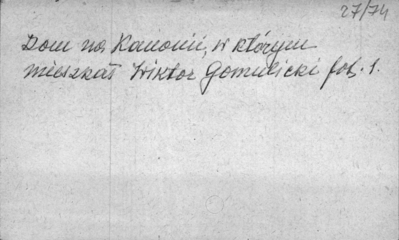 27/74
Dom na Kanonii, w którym
mieszkał Wiktor Gomulicki fot. 1.